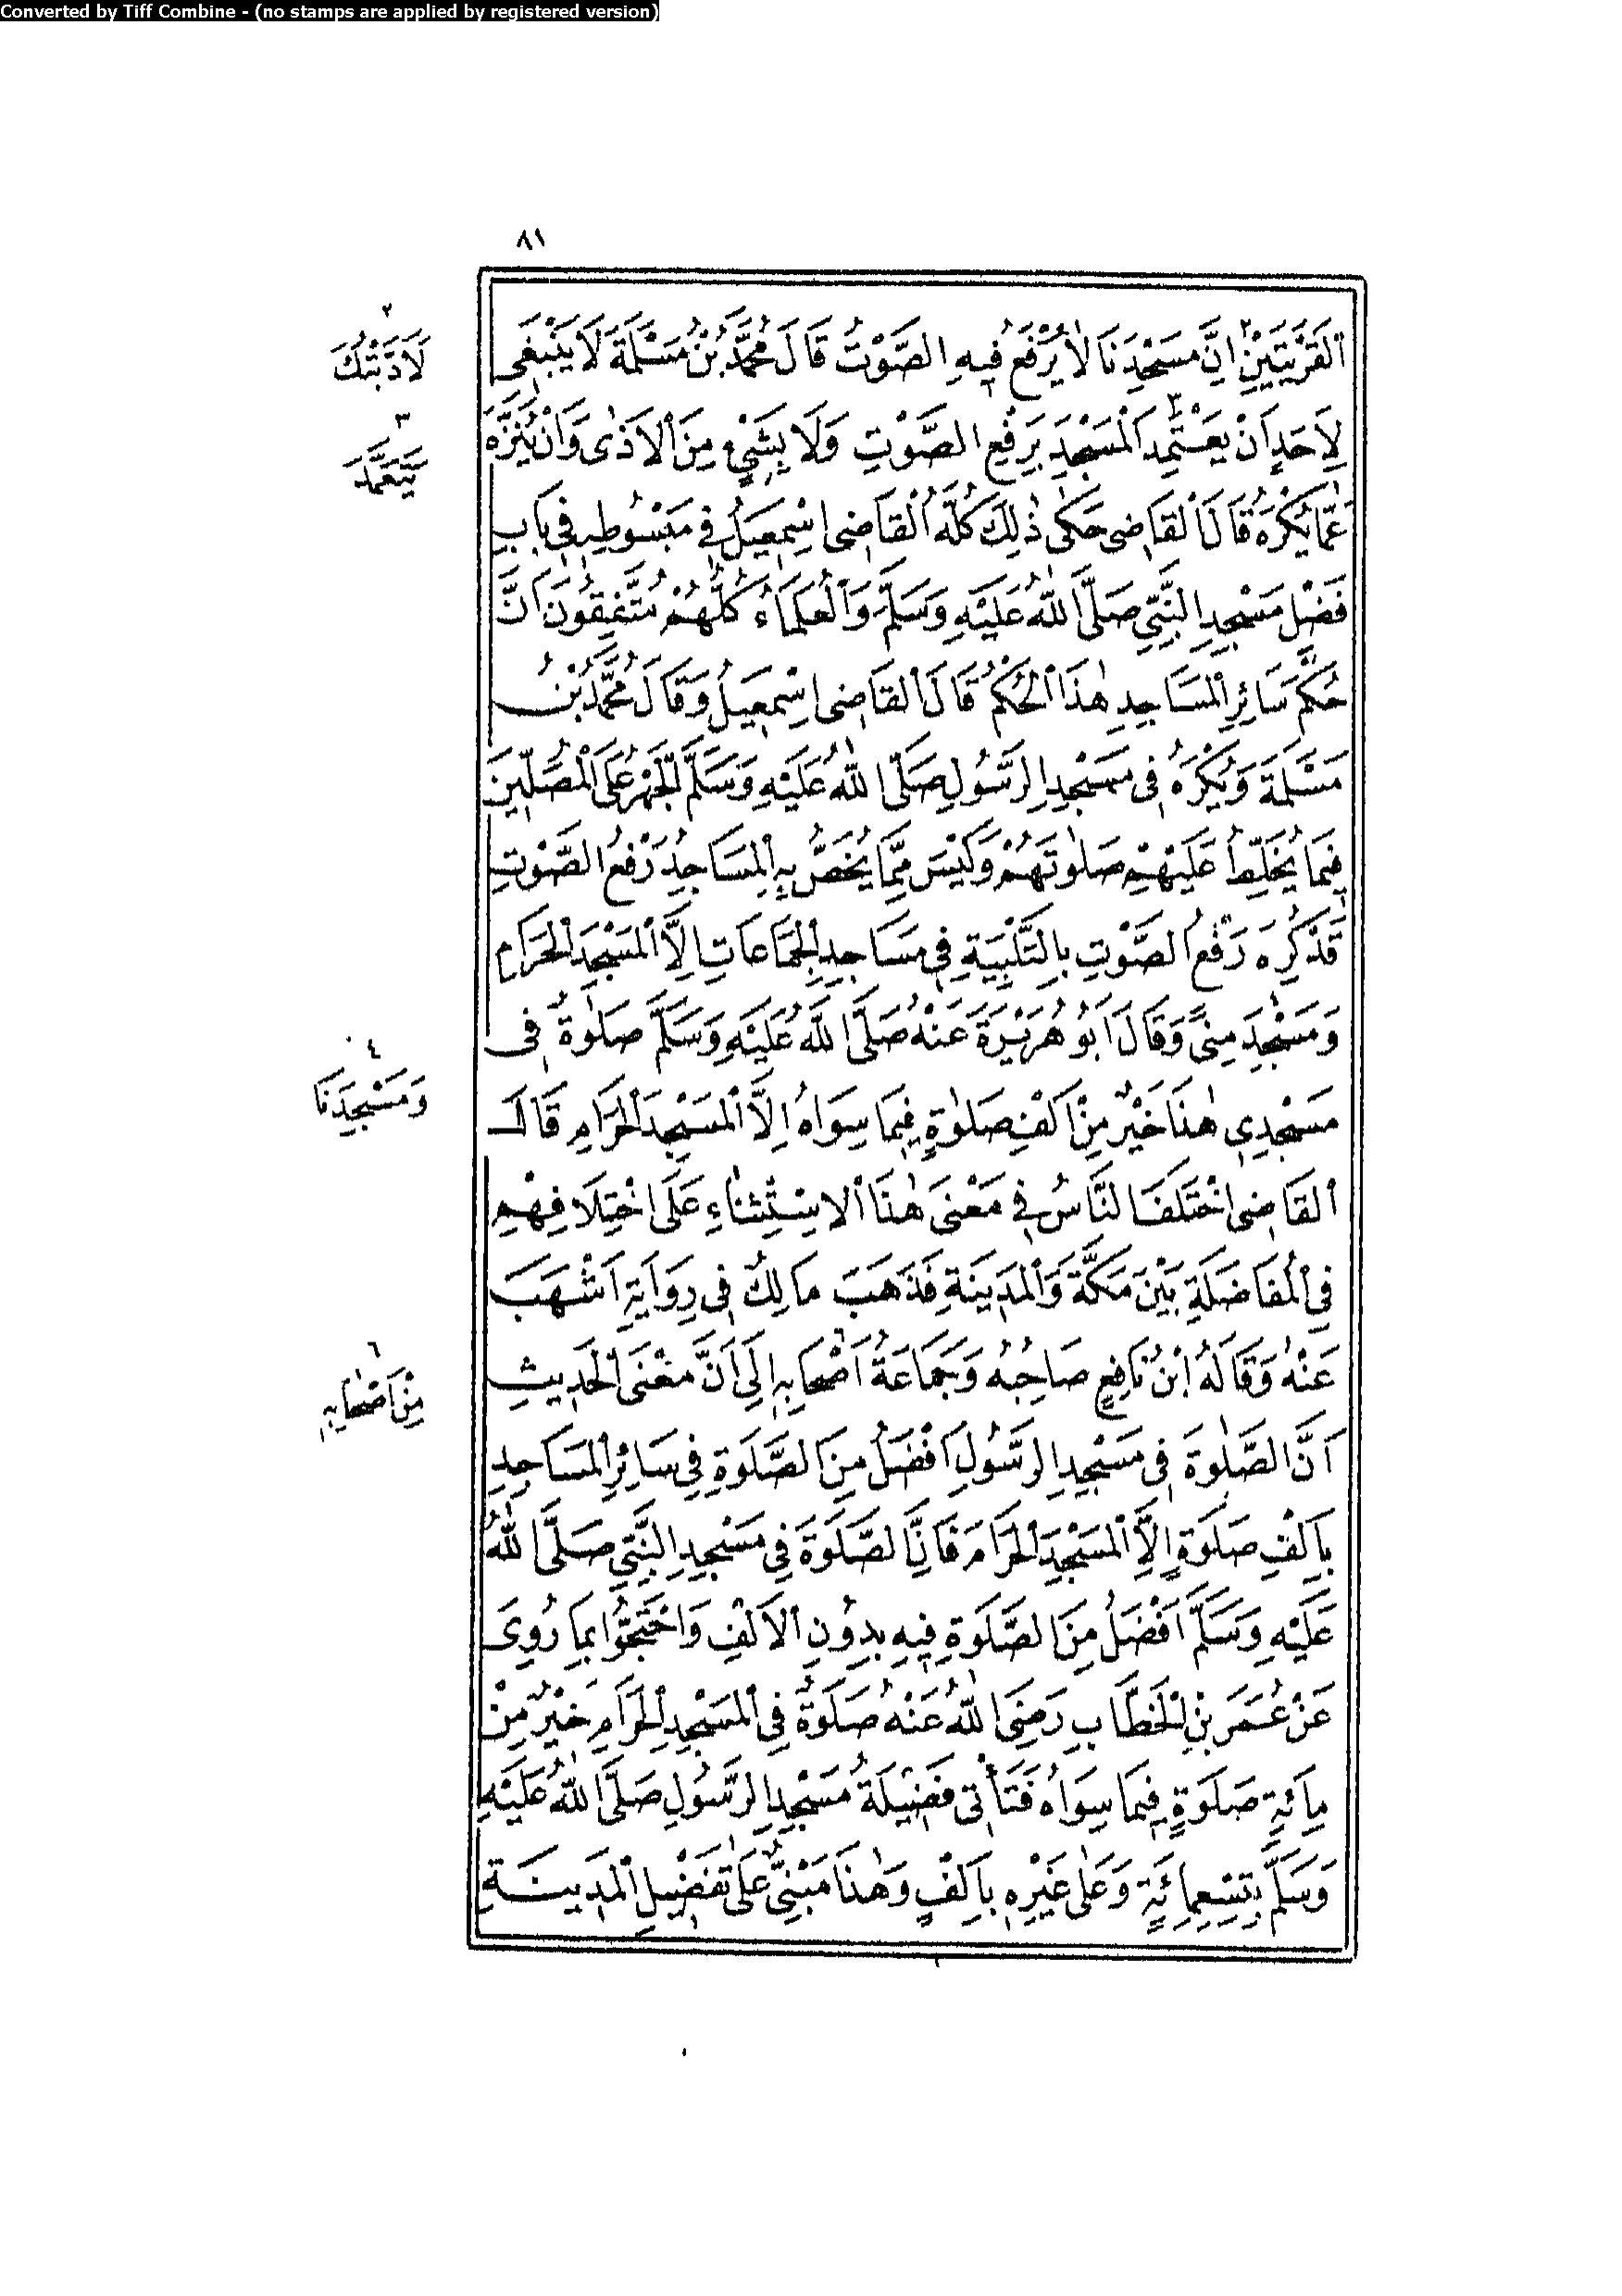 Converted by Tiff Combine - (no stamps are applied by registered version)
٨١
اَلْقَرْيَتَيْنِ ٢ اِنَّ مَسْجِدَنَا لَا يُرْفَعُ فِيهِ الصَّوْتُ قَالَ مُحَمَّدُ بْنُ مَسْلَمَةَ لَا يَنْبَغِى
لِاَحَدٍ اَنْ يَعْتَمِدَ ٣ الْمَسْجِدَ بِرَفْعِ الصَّوْتِ وَلَا بِشَىْءٍ مِنَ الْاَذٰى وَاَنْ يُنَزَّهَ
عَمَّا يُكْرَهُ قَالَ الْقَاضِى حَكٰى ذٰلِكَ كُلَّهُ الْقَاضِى اِسْمٰعِيلُ فِى مَبْسُوطِهِ فِى بَابِ
فَضْلِ مَسْجِدِ النَّبِىِّ صَلَّى اللّٰهُ عَلَيْهِ وَسَلَّمَ وَالْعُلَمَاءُ كُلُّهُمْ مُتَّفِقُونَ اَنَّ
حُكْمَ سَائِرِ الْمَسَاجِدِ هٰذَا الْحُكْمُ قَالَ الْقَاضِى اِسْمٰعِيلُ وَقَالَ مُحَمَّدُ بْنُ
مَسْلَمَةَ وَيُكْرَهُ فِى مَسْجِدِ الرَّسُولِ صَلَّى اللّٰهُ عَلَيْهِ وَسَلَّمَ الْجَهْرُ عَلَى الْمُصَلِّينَ
فِيمَا يُخَلِّطُ عَلَيْهِمْ صَلٰوتَهُمْ وَلَيْسَ مِمَّا يُخَصُّ بِهِ الْمَسَاجِدُ رَفْعُ الصَّوْتِ
قَدْ كُرِهَ رَفْعُ الصَّوْتِ بِالتَّلْبِيَةِ فِى مَسَاجِدِ الْجَمَاعَاتِ اِلَّا الْمَسْجِدَ الْحَرَامَ
وَمَسْجِدَ مِنًى وَقَالَ اَبُو هُرَيْرَةَ عَنْهُ صَلَّى اللّٰهُ عَلَيْهِ وَسَلَّمَ صَلٰوةٌ فِى
مَسْجِدِى هٰذَا خَيْرٌ مِنْ اَلْفِ صَلٰوةٍ فِيمَا سِوَاهُ اِلَّا الْمَسْجِدَ الْحَرَامَ قَالَ
اَلْقَاضِى اخْتَلَفَ النَّاسُ فِى مَعْنَى هٰذَا الْاِسْتِثْنَاءِ عَلَى اخْتِلَافِهِمْ
فِى الْمُفَاضَلَةِ بَيْنَ مَكَّةَ وَالْمَدِينَةِ فَذَهَبَ مَالِكٌ فِى رِوَايَةِ اَشْهَبَ
عَنْهُ وَقَالَهُ ابْنُ نَافِعٍ صَاحِبُهُ وَجَمَاعَةُ ٦ اَصْحَابِهِ اِلَى اَنَّ مَعْنَى الْحَدِيثِ
اَنَّ الصَّلٰوةَ فِى مَسْجِدِ الرَّسُولِ اَفْضَلُ مِنَ الصَّلَوةِ فِى سَائِرِ الْمَسَاجِدِ
بِاَلْفِ صَلَوةٍ اِلَّا الْمَسْجِدَ الْحَرَامَ فَاِنَّ الصَّلَوةَ فِى مَسْجِدِ النَّبِىِّ صَلَّى اللّٰهُ
عَلَيْهِ وَسَلَّمَ اَفْضَلُ مِنَ الصَّلَوةِ فِيهِ بِدُونِ الْاَلْفِ وَاحْتَجُّوا بِمَا رُوِىَ
عَنْ عُمَرَ بْنِ الْخَطَّابِ رَضِىَ اللّٰهُ عَنْهُ صَلَوةٌ فِى الْمَسْجِدِ الْحَرَامِ خَيْرٌ مِنْ
مِائَةِ صَلَوةٍ فِيمَا سِوَاهُ فَتَأْتِى فَضِيلَةُ مَسْجِدِ الرَّسُولِ صَلَّى اللّٰهُ عَلَيْهِ
وَسَلَّمَ بِتِسْعِمِائَةٍ وَعَلٰى غَيْرِهِ بِاَلْفٍ وَهٰذَا مَبْنِىٌّ عَلٰى تَفْضِيلِ الْمَدِينَةِ
٢
لَاَدَّبْتُكَ
٣
يَتَعَمَّدَ
٤
وَمَسْجِدَنَا
٦
مِنْ اَصْحَابِهِ